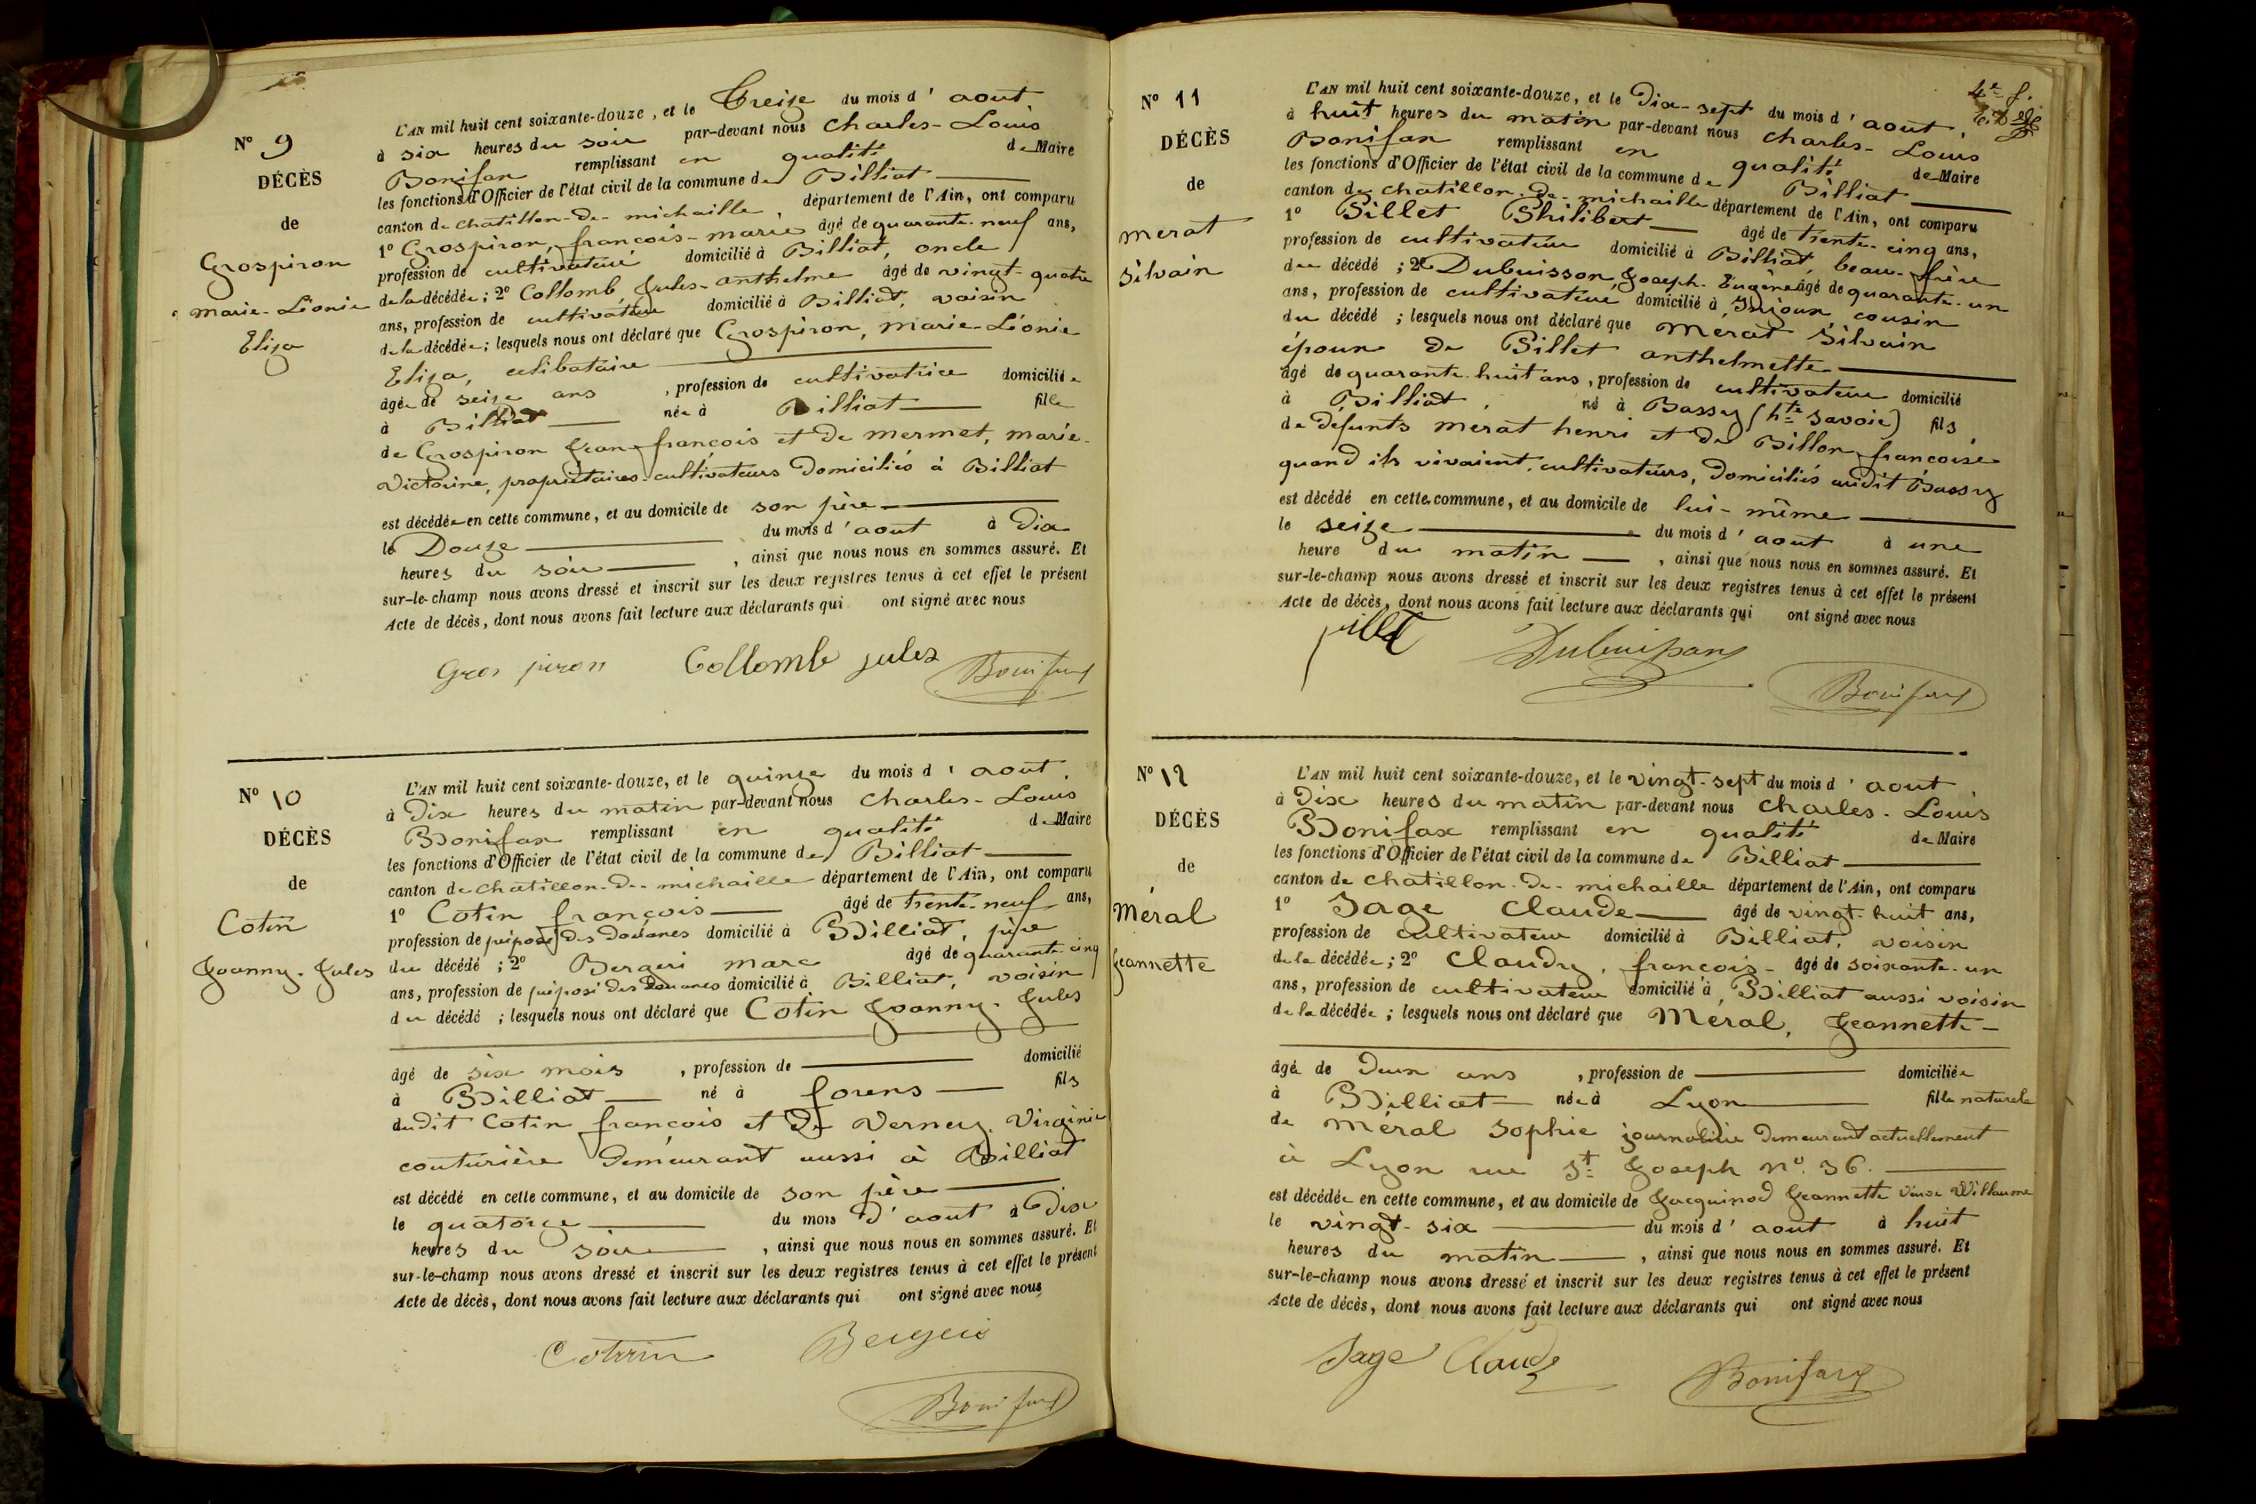 N° 9
DÉCÈS
de
Grospiron
marie-Léonie
Eliza
L'AN mil huit cent soixante-douze, et le Treize du mois d'aout,
à six heures du soir par-devant nous Charles-Louis
Bonifax remplissant en qualité de Maire
les fonctions d'Officier de l'état civil de la commune de Billiat
canton de chatillon-de-michaille, département de l'Ain, ont comparu
1° Grospiron, françois-marie âgé de quarante-neuf ans,
profession de cultivateur domicilié à Billiat, oncle
de la décédée; 2° Collomb Jules-anthelme âgé de vingt-quatre
ans, profession de cultivateur domicilié à Billiat, voisin
de la décédée; lesquels nous ont déclaré que Grospiron, marie-Léonie
Eliza, celibataire
âgée de seize ans, profession de cultivatrice domiciliée
à Billiat née à Billiat fille
de Grospiron Jean-françois et de mermet, marie-
victorine, propriétaires-cultivateurs domiciliés à Billiat
est décédée en cette commune, et au domicile de son père
le Douze du mois d'aout à dix
heures du soir, ainsi que nous nous en sommes assuré. Et
sur-le-champ nous avons dressé et inscrit sur les deux registres tenus à cet effet le présent
Acte de décès, dont nous avons fait lecture aux déclarants qui ont signé avec nous
Gros piron Collomb jules Bonifax
N° 10
DÉCÈS
de
Cotin
Joanny-Jules
L'AN mil huit cent soixante-douze, et le quinze du mois d'aout,
à Dix heures du matin par-devant nous Charles-Louis
Bonifax remplissant en qualité de Maire
les fonctions d'Officier de l'état civil de la commune de Billiat
canton de chatillon-de-michaille département de l'Ain, ont comparu
1° Cotin françois âgé de trente-neuf ans,
profession de préposé des douanes domicilié à Billiat, père
du décédé; 2° Bergeri marc âgé de quarante cinq
ans, profession de préposé des douanes domicilié à Billiat, voisin
du décédé; lesquels nous ont déclaré que Cotin Joanny-Jules
âgé de six mois, profession de domicilié
à Billiat né à forens fils
dudit Cotin françois et de Verney, Virginie
couturière demeurant aussi à Billiat
est décédé en cette commune, et au domicile de son père
le quatorze du mois d'aout à Dix
heures du soir, ainsi que nous nous en sommes assuré. Et
sur-le-champ nous avons dressé et inscrit sur les deux registres tenus à cet effet le présent
Acte de décès, dont nous avons fait lecture aux déclarants qui ont signé avec nous
Bonifax
4e f.
N° 11
DÉCÈS
de
merat
Silvain
L'AN mil huit cent soixante-douze, et le Dix-sept du mois d'aout,
à huit heures du matin par-devant nous Charles-Louis
Bonifax remplissant en qualité de Maire
les fonctions d'Officier de l'état civil de la commune de Billiat
canton de chatillon-de-michaille département de l'Ain, ont comparu
1° Pillet Philibert âgé de trente-cinq ans,
profession de cultivateur domicilié à Billiat, beau-frère
du décédé; 2° Dubuisson, Joseph-Eugène âgé de quarante-un
ans, profession de cultivateur domicilié à Injoux, cousin
du décédé; lesquels nous ont déclaré que Merat Silvain
époux de Pillet anthelmette
âgé de quarante-huit ans, profession de cultivateur domicilié
à Billiat, né à Bassy (hte Savoie) fils
de défunts merat henri et de Billon françoise
quand ils vivaient, cultivateurs, domiciliés audit Bassy
est décédé en cette commune, et au domicile de lui-même
le seize du mois d'aout à une
heure du matin, ainsi que nous nous en sommes assuré. Et
sur-le-champ nous avons dressé et inscrit sur les deux registres tenus à cet effet le présent
Acte de décès, dont nous avons fait lecture aux déclarants qui ont signé avec nous
pillet Dubuisson Bonifax
N° 12
DÉCÈS
de
Méral
Jeannette
L'AN mil huit cent soixante-douze, et le vingt-sept du mois d'aout
à Dix heures du matin par-devant nous Charles-Louis
Bonifax remplissant en qualité de Maire
les fonctions d'Officier de l'état civil de la commune de Billiat
canton de chatillon-de-michaille département de l'Ain, ont comparu
1° Sage Claude âgé de vingt-huit ans,
profession de cultivateur domicilié à Billiat, voisin
de la décédée; 2° Claudy, françois- âgé de soixante-un
ans, profession de cultivateur domicilié à Billiat aussi voisin
de la décédée; lesquels nous ont déclaré que Méral, Jeannette
âgée de Deux ans, profession de domiciliée
à Billiat née à Lyon fille naturelle
de Méral Sophie journalière demeurant actuellement
à Lyon rue St Joseph n° 36.
est décédée en cette commune, et au domicile de Jacquinod Jeannette veuve Willaume
le vingt-six du mois d'aout à huit
heures du matin, ainsi que nous nous en sommes assuré. Et
sur-le-champ nous avons dressé et inscrit sur les deux registres tenus à cet effet le présent
Acte de décès, dont nous avons fait lecture aux déclarants qui ont signé avec nous
Sage Claude Bonifax